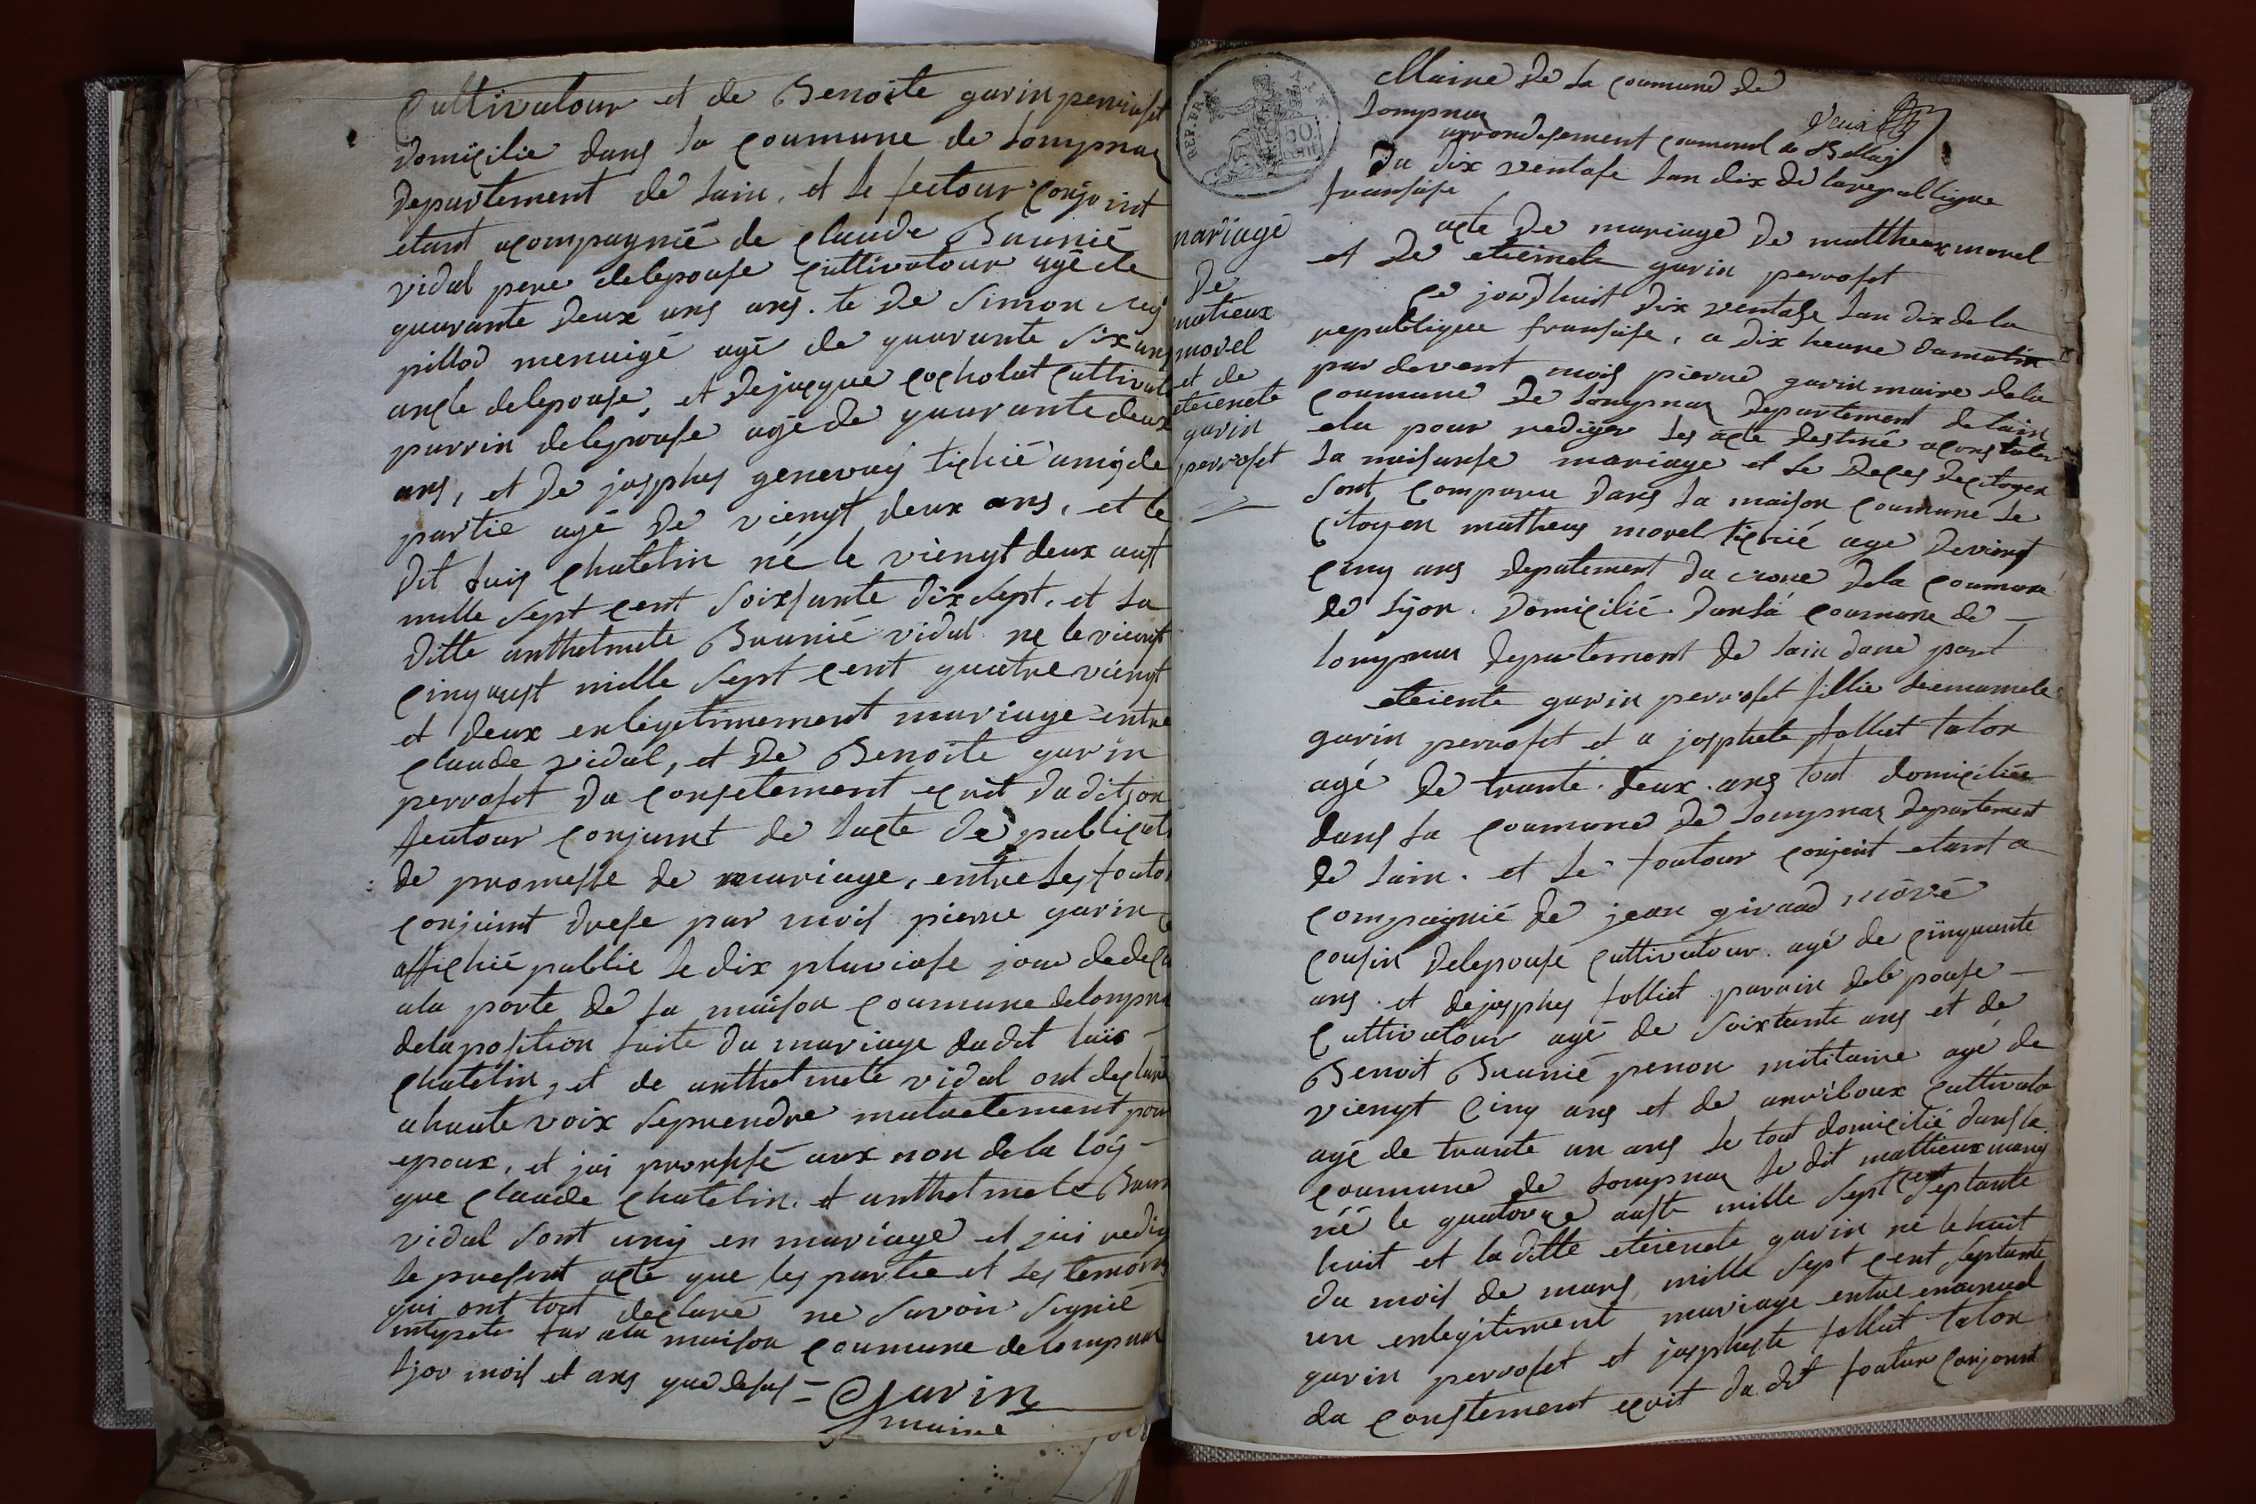 Cultivatour et de Benoite gavin perrofet
domicilie dans la coumune de Lompnas
departement de lain, et le feutour conjoint
etant acompagnié de claude Baunié
vidal pere delepouse cultivatour agé de
quarante deux ans ans. te de Simon
pillod menaigé agé de quarante six ans
ancle delepouse, et dejacque cocholat cultivat
parrin delepouse agé de quarante deux
ans, et de josphes genevay tichié amis de
partie agé de viengt deux ans, et le
dit luis chatelin né le viengt deux aust
mille sept cent soixsante dix sept, et la
ditte anthelmete Baunié vidal ne le viengt
cinq aust mille sept cent quatre viengt
et deux enlegitimement mariage entre
claude vidal, et de Benoite gavin
perrofet du consetement ecrit du dit son
feutour conjoint de lacte de publicati
de promesse de mariage, entre les foutou
conjoint drese par mois pierre gavin
affichié publie le dix pluviose jour de deca
ala porte de la maison coumune delompna
delaposition faite du mariage dudit luis
chatelin, et de anthelmete vidal ont declaré
ahaute voix seprendre mutuelement pour
epoux, et jai prononsé aux non de la loÿ
que claude chatelin, et anthelmete Baun
vidal sont uniy en mariage et jai redig
le present acte que les partie et les temoins
qui ont tout declaré ne savoir signié
interpete fai ala maison coumune de lompnas
ljor mois et ans que desus = Gavin
maire
Maire de la coumune de
Lompnas
arrondesement coumunal de Bellaÿ
Du dix ventose lan dix de larepublique
fransaise
acte de mariage de mattheux morel
et de etienete gavin perrofet
ce jourdhuit dix ventose lan dix de la
republique fransaise, a dix heure dumatin
par devent mois pierre gavin maire dela
coumune de Lompnas departement de lain
elu pour rediger les acte destiné aconstater
la naisanse mariage et le deces decitoyen
sont comparu dans la maison coumune le
citoyen matheus morel tichié agé devient
cinq ans depatement du rone dela coumune
de lÿon. domicilié dansla coumune de
lompnas departement de lain dune part
etiente gavin perrofet fillie deemanuele
gavin perrofet et a josphete folliet talon
agé de trante deux ans tout domiciliée
dans la coumune de Lompnas departement
de lain. et le foutour conjoint etant a
compaignié de jean giraud moré
cousin delepouse cultivatour agé de cinquante
ans. et dejosphes folliet parrain delepouse
cultivatour agé de soixtante ans et de
Benoit Baunié penon militaire agé de
viengt cinq ans et de anriboux cultivato
agé de trante un ans le tout domicilié dansla
coumune de Lompnas le dit mattieux
né le quatorze auste mille sept cent septante
huit et la ditte etienete gavin né le huit
du mois de mars mille sept cent septante
un enlegitiment mariage entre emanuel
gavin perrofet et josphete folliet talon
du constement ecrit du dit foutur conjoint
mariage
De
matieux
morel
et de
etienete
gavin
perrofet